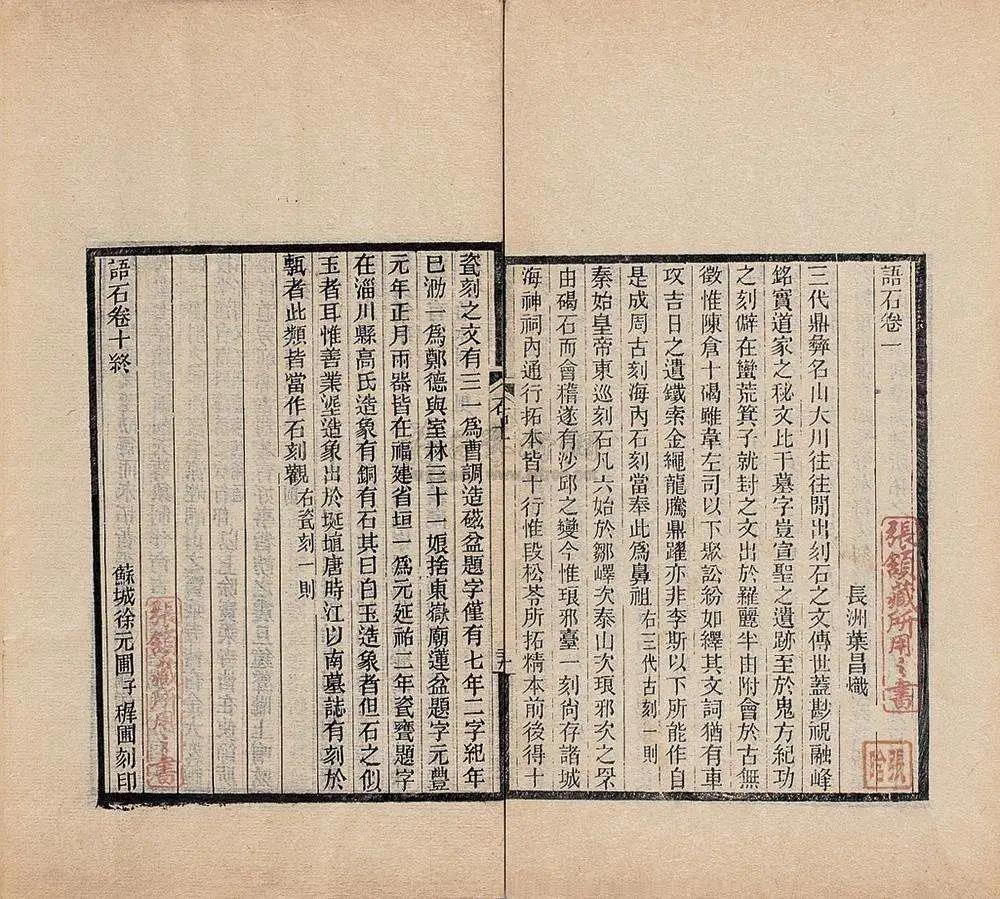 語石卷一
長洲葉昌熾
三代鼎彝名山大川往往閒出刻石之文傳世蓋尟祝融峰
銘實道家之秘文比干墓字豈宣聖之遺跡至於鬼方紀功
之刻僻在蠻荒箕子就封之文出於羅麗半由附會於古無
徵惟陳倉十碣雖韋左司以下聚訟紛如繹其文詞猶有車
攻吉日之遺鐵索金繩龍騰鼎躍亦非李斯以下所能作自
是成周古刻海內石刻當奉此爲鼻祖 右三代古刻一則
秦始皇帝東巡刻石凡六始於鄒嶧次泰山次琅邪次之罘
由碣石而會稽遂有沙邱之變今惟琅邪臺一刻尚存諸城
海神祠內通行拓本皆十行惟段松苓所拓精本前後得十
張頷藏所用之書
張頷
石十
瓷刻之文有三一爲曹調造磁盆題字僅有七年二字紀年
已泐一爲鄭德與室林三十一娘捨東嶽廟蓮盆題字元豐
元年正月兩器皆在福建省垣一爲元延祐二年瓷甕題字
在淄川縣高氏造象有銅有石其曰白玉造象者但石之似
玉者耳惟善業埿造象出於埏埴唐時江以南墓誌有刻於
甎者此類皆當作石刻觀 右瓷刻一則
語石卷十終
蘇城徐元圃子稺圃刻印
張頷藏所用之書